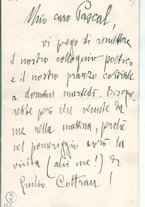 Mio caro Pascal,
vi prego di rimettere
il nostro colloquio poetico
e il nostro pranzo cordiale
a domani martedì. Bisogne-
rebbe però che veniste da
me nella mattina, perché
nel pomeriggio avrò la
visita (ahi me!) di
Giulio Cottrau!